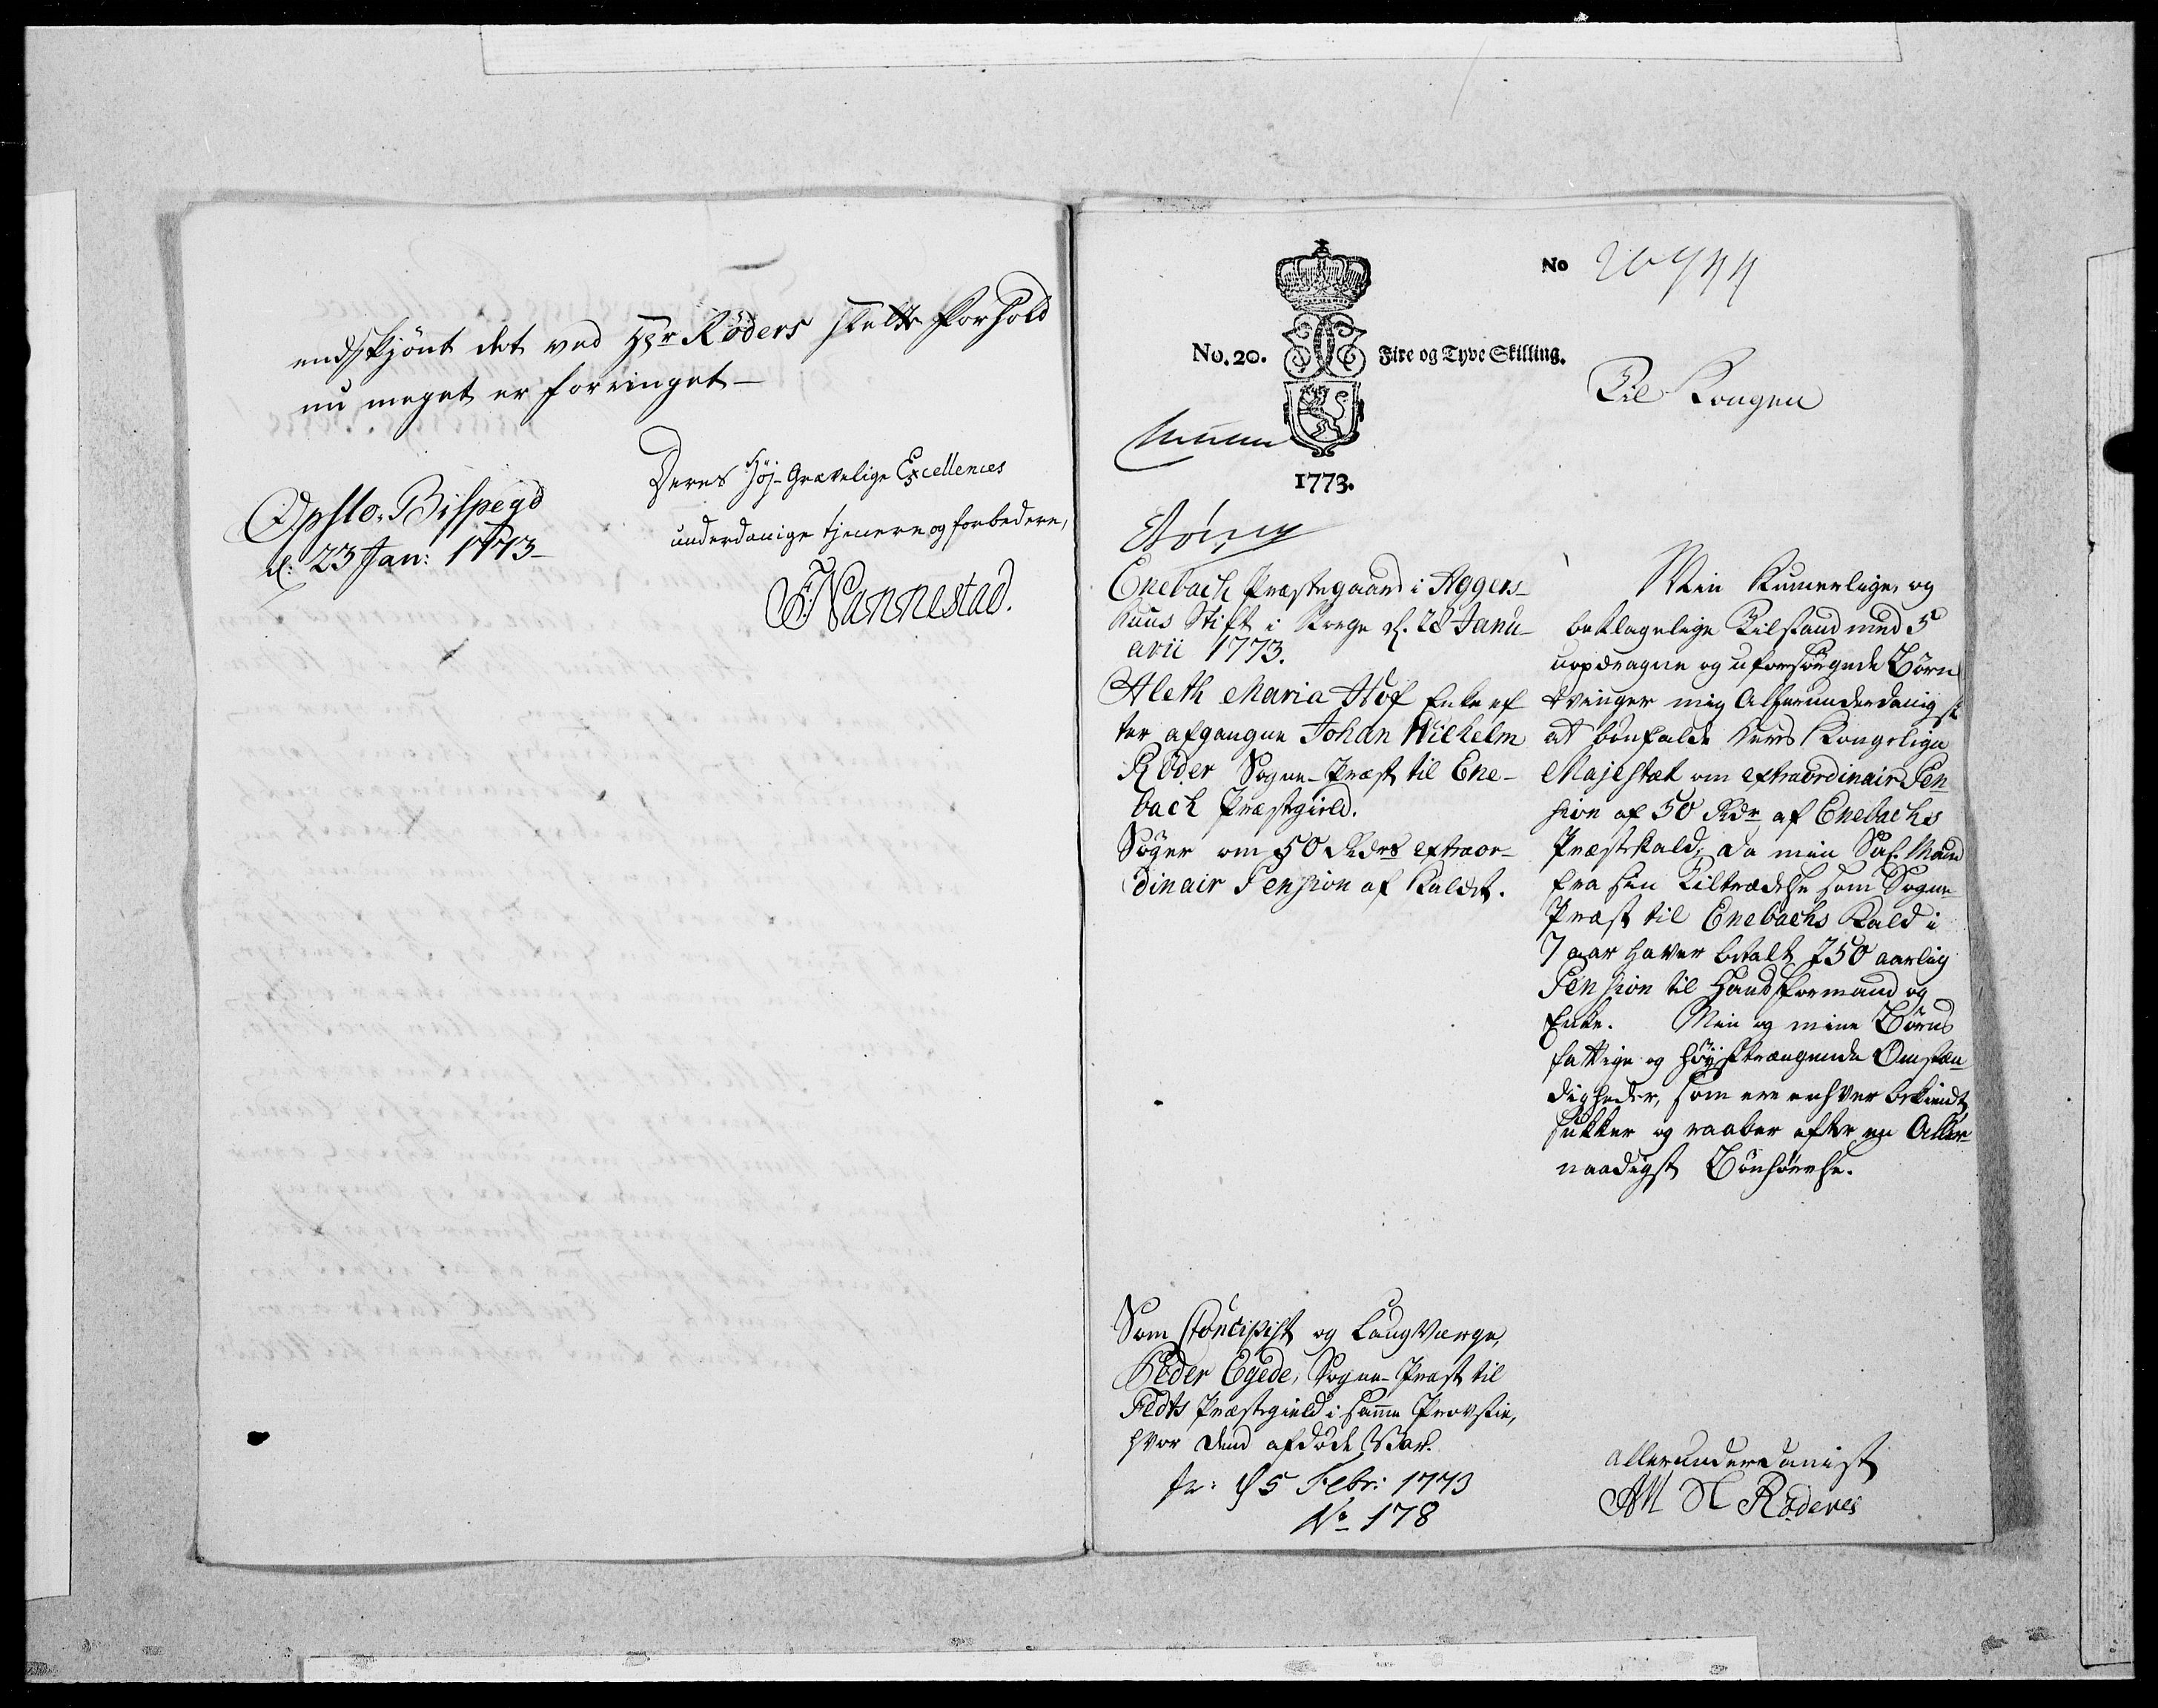 endskjönt det ved Hr Röders slette forhold
nu meget er forringet —
Deres Höj-Grævelige Excellences
underdanige tjenere og forbedere,
Opslo Bispegd
d: 23 Jan: 1773
FNannestad.
No 20944
No. 20. Fire og Tyve Skilling.
1773.
Til Kongen
Enebach Præstegaard i Aggers-
huus Stift i Norge d. 28 Janu-
arii 1773.
Aleth Maria Hof Enke ef
ter afgangne Johan Wilhelm
Röder Sogne-Præst til Ene-
bach Præstegield.
Söger om 50 Rdrs extraor-
dinair Pension af Kaldet.
Min Kumerlige og
beklagelige Tilstand med 5
uopdragne og uforsörgede Börn
tvinger mig Allerunderdanigst
at bönfalde Deres Kongelige
Majestæt om extraordinair Pen
sion af 50 Rdr af Enebachs
Præstekald, da min Sal. Mand
fra sin Tiltrædelse som Sogne-
Præst til Enebachs Kald i
7 aar haver betalt 250 aarlig
Pension til Hands Formand og
Enke. Min og mine Börns
fattige og höystrængende Omstæn
digheder, som ere enhver bekiendt
sukker og raaber efter en Aller-
naadigst Bönhörelse.
Som Concipist og Laugværge,
Peder Egede, Sogne-Præst til
Fedts Præstegield i samme Provstie,
hvor dend afdöde Var.
pr: d 5 Febr: 1773
No 178
allerunderdanigst
AM Röders